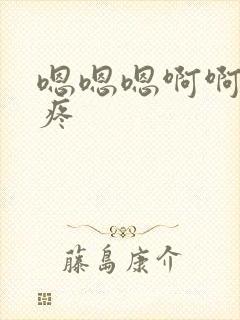 嗯嗯嗯啊啊
疼
藤島康介